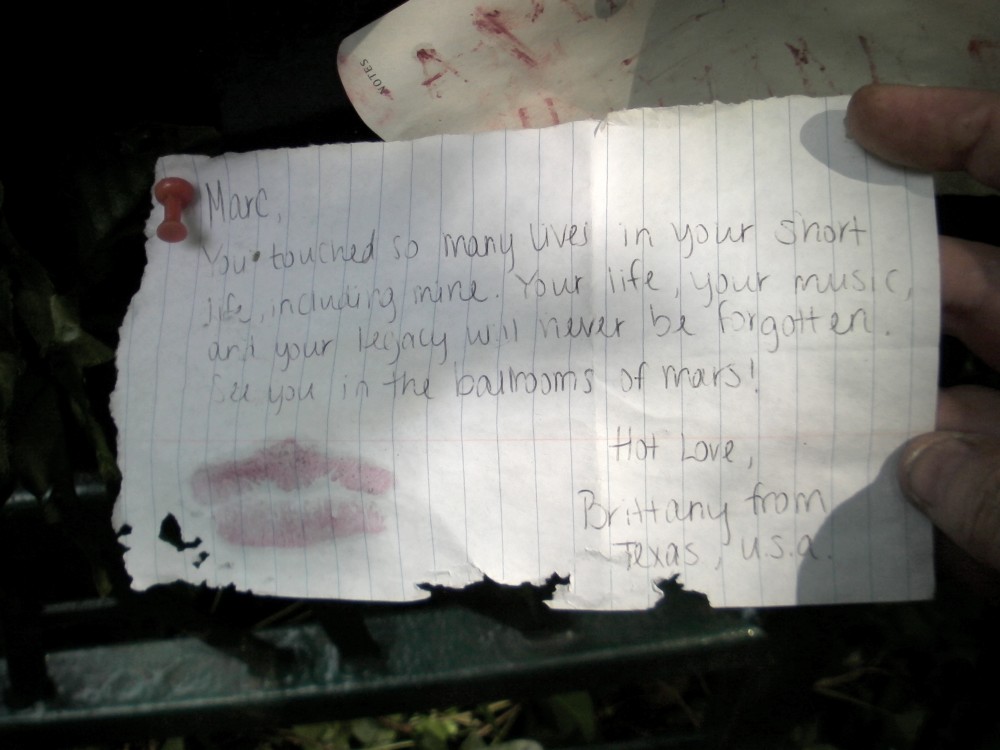 NOTES
Marc,
You touched so many lives in your short
life, including mine. Your life, your music,
and your legacy will never be forgotten.
See you in the ballrooms of mars!
Hot Love,
Brittany from
Texas, U.S.A.